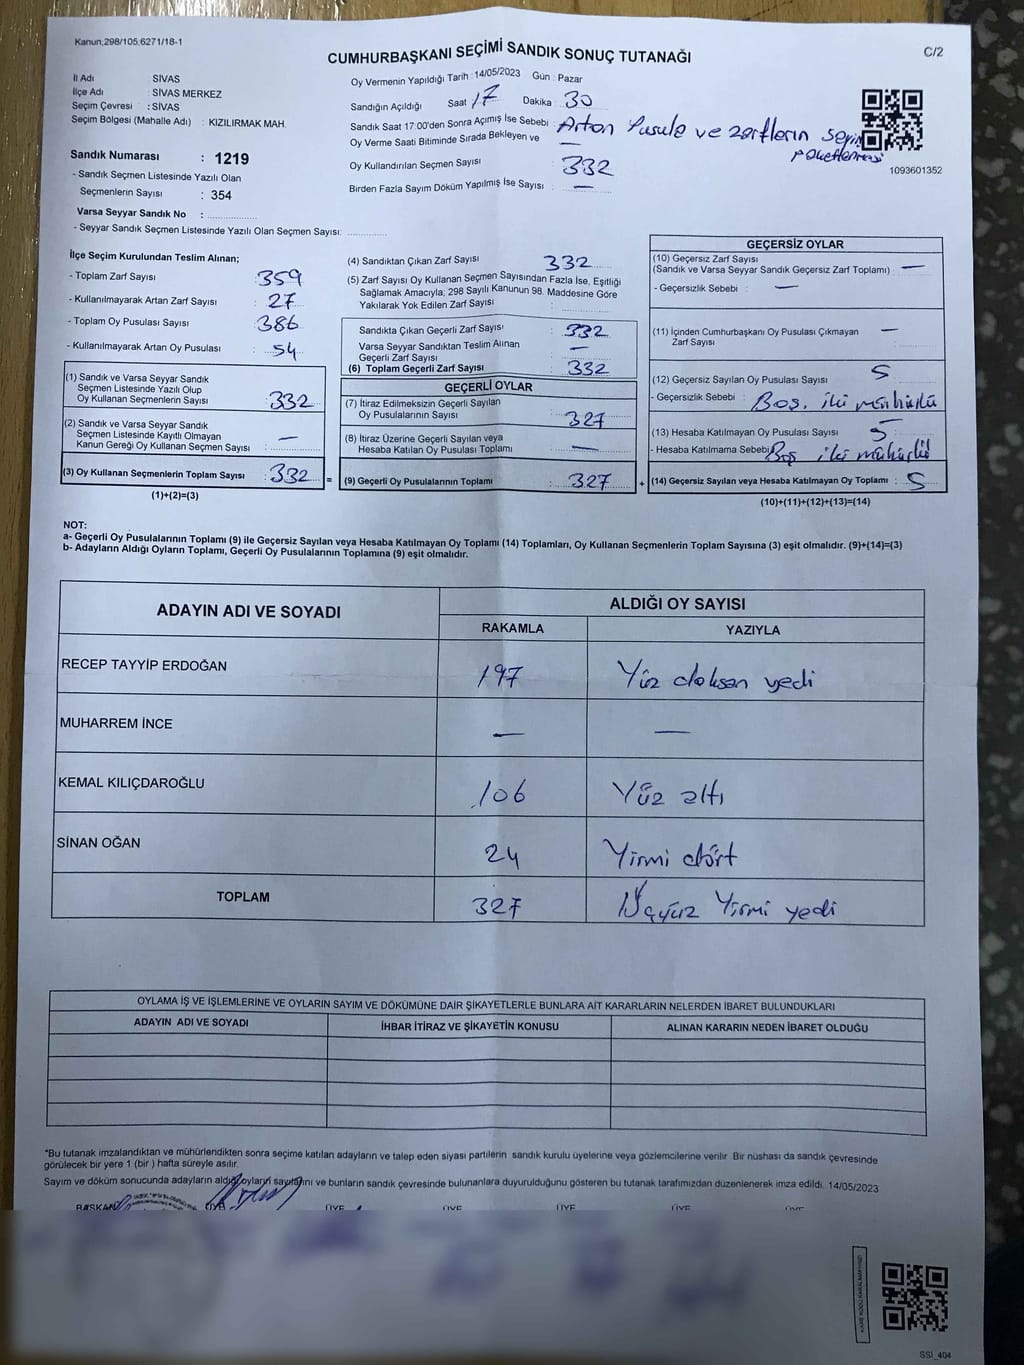 Kanun,298/105,6271/18-1
CUMHURBAŞKANI SEÇİMİ SANDIK SONUÇ TUTANAĞI
C/2
İl Adı SİVAS
İlçe Adı : SİVAS MERKEZ
Seçim Çevresi : SİVAS
Seçim Bölgesi (Mahalle Adı) : KIZILIRMAK MAH.
Sandık Numarası : 1219
- Sandık Seçmen Listesinde Yazılı Olan
Seçmenlerin Sayısı : 354
Varsa Seyyar Sandık No :
- Seyyar Sandık Seçmen Listesinde Yazılı Olan Seçmen Sayısı:
Oy Vermenin Yapıldığı Tarih : 14/05/2023 Gün : Pazar
Sandığın Açıldığı Saat : 17 Dakika : 30
Sandık Saat 17:00'den Sonra Açımış İse Sebebi : Artan Pusula ve zarfların sayım
paketlenmesi
Oy Verme Saati Bitiminde Sırada Bekleyen ve : —
Oy Kullandırılan Seçmen Sayısı : 332
Birden Fazla Sayım Döküm Yapılmış İse Sayısı : —
1093601352
İlçe Seçim Kurulundan Teslim Alınan;
- Toplam Zarf Sayısı : 359
- Kullanılmayarak Artan Zarf Sayısı : 27
- Toplam Oy Pusulası Sayısı : 386
- Kullanılmayarak Artan Oy Pusulası : 54
(1) Sandık ve Varsa Seyyar Sandık
Seçmen Listesinde Yazılı Olup
Oy Kullanan Seçmenlerin Sayısı : 332
(2) Sandık ve Varsa Seyyar Sandık
Seçmen Listesinde Kayıtlı Olmayan
Kanun Gereği Oy Kullanan Seçmen Sayısı : —
(3) Oy Kullanan Seçmenlerin Toplam Sayısı : 332 =
(1)+(2)=(3)
(4) Sandıktan Çıkan Zarf Sayısı 332
(5) Zarf Sayısı Oy Kullanan Seçmen Sayısından Fazla İse, Eşitliği
Sağlamak Amacıyla; 298 Sayılı Kanunun 98. Maddesine Göre
Yakılarak Yok Edilen Zarf Sayısı :
Sandıkta Çıkan Geçerli Zarf Sayısı : 332
Varsa Seyyar Sandıktan Teslim Alınan
Geçerli Zarf Sayısı : —
(6) Toplam Geçerli Zarf Sayısı : 332
GEÇERLİ OYLAR
(7) İtiraz Edilmeksizin Geçerli Sayılan
Oy Pusulalarının Sayısı : 327
(8) İtiraz Üzerine Geçerli Sayılan veya
Hesaba Katılan Oy Pusulaları Toplamı : —
(9) Geçerli Oy Pusulalarının Toplamı : 327 +
GEÇERSİZ OYLAR
(10) Geçersiz Zarf Sayısı
(Sandık ve Varsa Seyyar Sandık Geçersiz Zarf Toplamı) : —
- Geçersizlik Sebebi : —
(11) İçinden Cumhurbaşkanı Oy Pusulası Çıkmayan
Zarf Sayısı : —
(12) Geçersiz Sayılan Oy Pusulası Sayısı : 5
- Geçersizlik Sebebi : Boş, iki mühürlü
(13) Hesaba Katılmayan Oy Pusulası Sayısı : 5
- Hesaba Katılmama Sebebi : Boş iki mühürlü
(14) Geçersiz Sayılan veya Hesaba Katılmayan Oy Toplamı : 5
(10)+(11)+(12)+(13)=(14)
NOT:
a- Geçerli Oy Pusulalarının Toplamı (9) ile Geçersiz Sayılan veya Hesaba Katılmayan Oy Toplamı (14) Toplamları, Oy Kullanan Seçmenlerin Toplam Sayısına (3) eşit olmalıdır. (9)+(14)=(3)
b- Adayların Aldığı Oyların Toplamı, Geçerli Oy Pusulalarının Toplamına (9) eşit olmalıdır.
ADAYIN ADI VE SOYADI ALDIĞI OY SAYISI
RAKAMLA YAZIYLA
RECEP TAYYİP ERDOĞAN 197 Yüz doksan yedi
MUHARREM İNCE — —
KEMAL KILIÇDAROĞLU 106 Yüz altı
SİNAN OĞAN 24 Yirmi dört
TOPLAM 327 Üçyüz Yirmi yedi
OYLAMA İŞ VE İŞLEMLERİNE VE OYLARIN SAYIM VE DÖKÜMÜNE DAİR ŞİKAYETLERLE BUNLARA AİT KARARLARIN NELERDEN İBARET BULUNDUKLARI
ADAYIN ADI VE SOYADI İHBAR İTİRAZ VE ŞİKAYETİN KONUSU ALINAN KARARIN NEDEN İBARET OLDUĞU
*Bu tutanak imzalandıktan ve mühürlendikten sonra seçime katılan adayların ve talep eden siyasi partilerin sandık kurulu üyelerine veya gözlemcilerine verilir. Bir nüshası da sandık çevresinde
görülecek bir yere 1 (bir ) hafta süreyle asılır.
Sayım ve döküm sonucunda adayların aldığı oyların sayılarını ve bunların sandık çevresinde bulunanlara duyurulduğunu gösteren bu tutanak tarafımızdan düzenlenerek imza edildi. 14/05/2023
BAŞKAN ÜYE ÜYE ÜYE ÜYE ÜYE ÜYE
SSİ_404